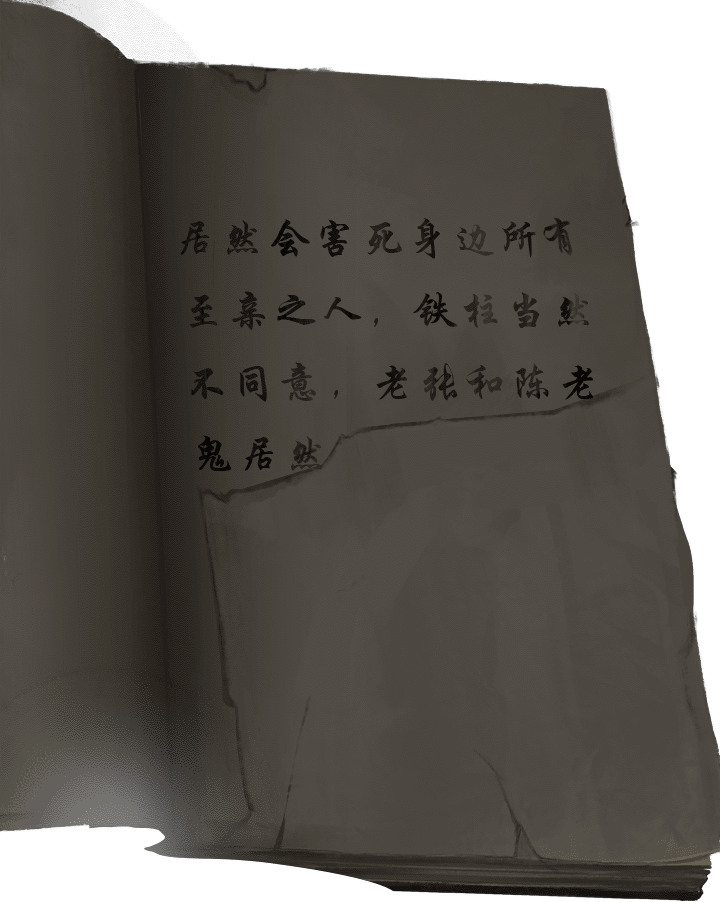 居然会害死身边所有
至亲之人，铁柱当然
不同意，老张和陈老
鬼居然